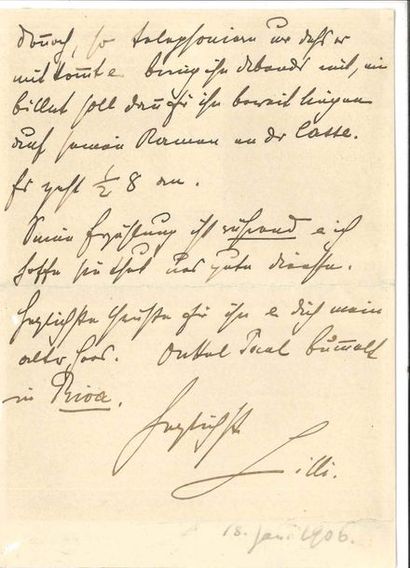 Donnoch, so telephoniere nur dass er
mitkommt e bring ihn abends mit, ein
billet soll dann für ihn bereit liegen
auf seinen Namen an der Casse.
Es geht ½ 8 an.
Seine Erzählung ist rührend e ich
hoffe sie thut uns gute dienste.
Herzlichste Grüsse für ihn e dich mein
alter Onkel Paul bummelt
in Riva.
Herzlichst
Lilli.
18. Jan. 1906.